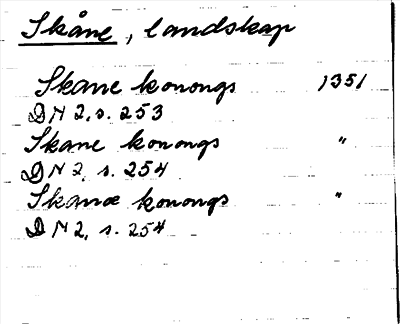 Skåne, landskap
Skane konongs 1351
DN 2, s. 253
Skane konongs "
DN 2, s. 254
Skanæ konongs "
DN 2, s. 254